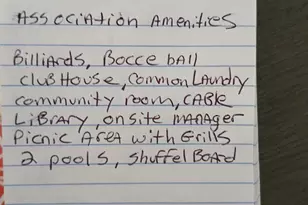 Association Amenities
Billiards, Bocce ball
clubHouse, Common Laundry
community room, cable
Library, onsite manager
Picnic Area with Grills
2 pools, shuffelBoard